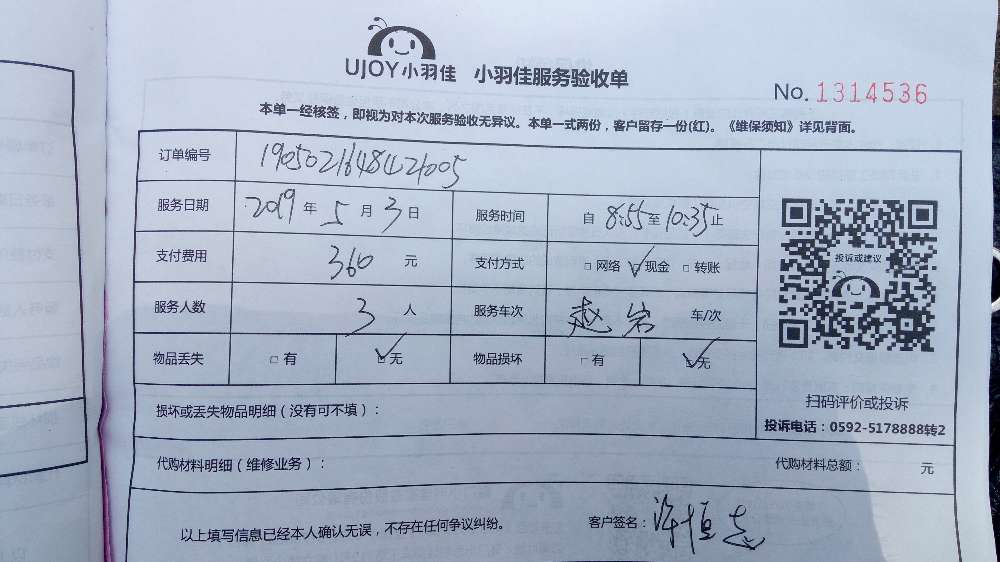 UJOY小羽佳 小羽佳服务验收单
No. 1314536
本单一经核签，即视为对本次服务验收无异议。本单一式两份，客户留存一份(红)。《维保须知》详见背面。
订单编号 190502164842005
服务日期 2019 年 5 月 3 日 服务时间 自 8:55 至 10:35 止
支付费用 360 元 支付方式 □ 网络 ☑ 现金 □ 转账
服务人数 3 人 服务车次 赵岩 车/次
物品丢失 □ 有 ☑ 无 物品损坏 □ 有 ☑ 无
投诉或建议
扫码评价或投诉
投诉电话：0592-5178888转2
损坏或丢失物品明细（没有可不填）：
代购材料明细（维修业务）： 代购材料总额： 元
以上填写信息已经本人确认无误，不存在任何争议纠纷。 客户签名：许恒志